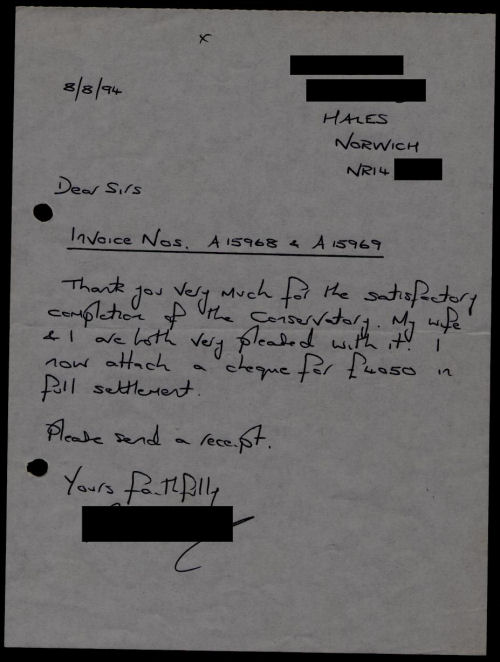 x
8/8/94
HALES
NORWICH
NR14
Dear Sirs
Invoice Nos. A15968 & A15969
Thank you very much for the satisfactory
completion of the Conservatory. My wife
& I are both very pleased with it. I
now attach a cheque for £4050 in
full settlement.
Please send a receipt.
Yours faithfully